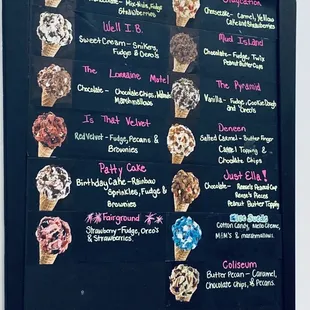 Strawberries
Well I.B.
Sweet Cream - Snikers,
Fudge & Oreo's
The Lorraine Motel
Chocolate - Chocolate Chips, Walnuts
Marshmallows
Is That Velvet
Red Velvet - Fudge, Pecans &
Brownies
Patty Cake
Birthday Cake - Rainbow
Sprinkles, Fudge &
Brownies
Fairground
Strawberry - Fudge, Oreo's
& Strawberries
Cheesecake - Caramel, Yellow
Cake and Strawberries
Mud Island
Chocolate - Fudge, Twix
Peanut Butter Cups
The Pyramid
Vanilla - Fudge, Cookie Dough
and Oreo's
Deneen
Salted Caramel - Butter Finger
Caramel Topping &
Chocolate Chips
Just Ella!
Chocolate - Reese's Peanut Cup
Reese's Pieces
Peanut Butter Topping
Blue Suede
Cotton Candy, Mello Creme,
M&M's & marshmallows.
Coliseum
Butter Pecan - Caramel,
Chocolate Chips, & Pecans.